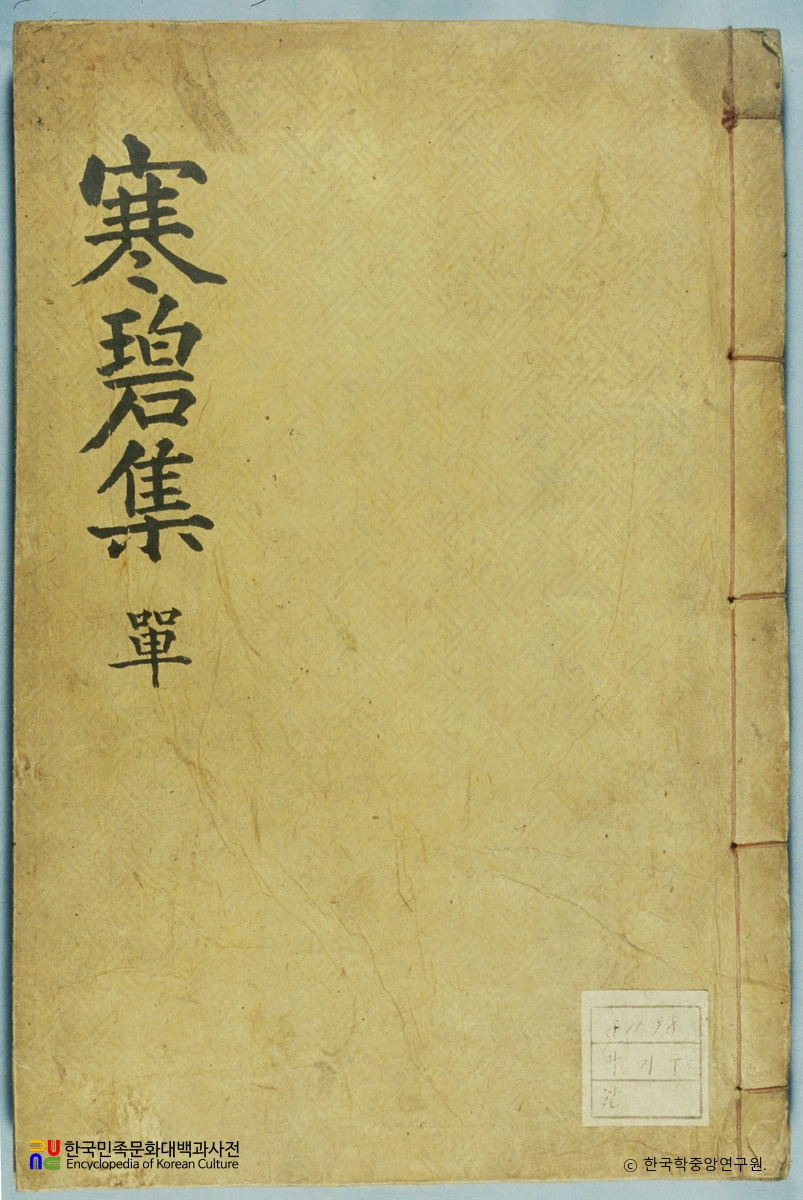 寒碧集 單
한국민족문화대백과사전
Encyclopedia of Korean Culture
© 한국학중앙연구원.